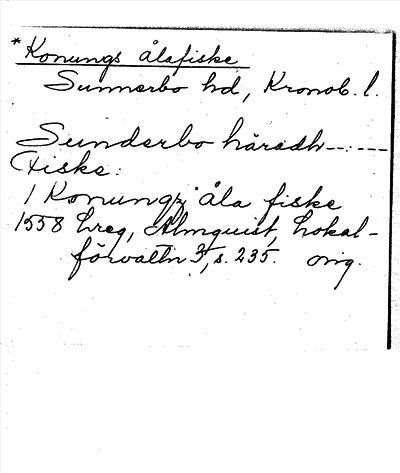 * Konungs ålafiske
Sunnerbo hd, Kronob. l.
Sunderbo häredh --:---
Fiske:
1 Konungz åla fiske
1558 Lreg, Almquist, Lokal-
förvaltn 3, s. 235. orig.